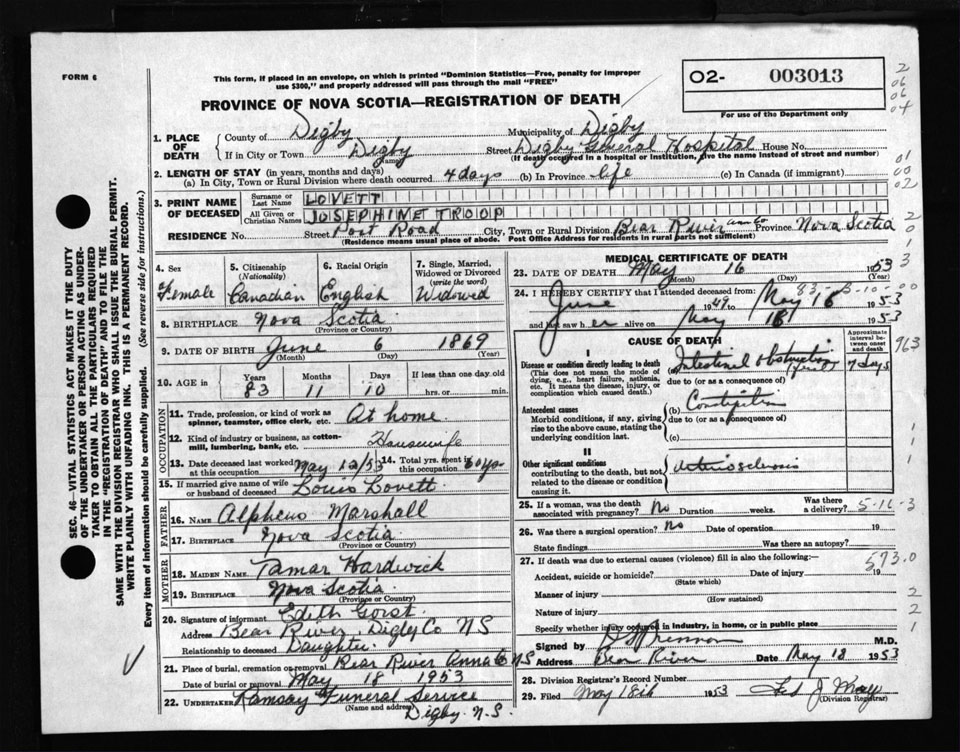 FORM 6
This form, if placed in an envelope, on which is printed "Dominion Statistics—Free, penalty for improper
use $300," and properly addressed will pass through the mail "FREE"
O2- 003013
For use of the Department only
2
06
06
04
PROVINCE OF NOVA SCOTIA—REGISTRATION OF DEATH
SEC. 46—VITAL STATISTICS ACT MAKES IT THE DUTY
OF THE UNDERTAKER OR PERSON ACTING AS UNDER-
TAKER TO OBTAIN ALL THE PARTICULARS REQUIRED
IN THE "REGISTRATION OF DEATH" AND TO FILE THE
SAME WITH THE DIVISION REGISTRAR WHO SHALL ISSUE THE BURIAL PERMIT.
WRITE PLAINLY WITH UNFADING INK. THIS IS A PERMANENT RECORD.
Every item of information should be carefully supplied. (See reverse side for instructions.)
1. PLACE OF DEATH
County of Digby Municipality of Digby
If in City or Town Digby Street Digby General Hospital House No.
(Name) (If death occurred in a hospital or institution, give the name instead of street and number)
2. LENGTH OF STAY (in years, months and days)
(a) In City, Town or Rural Division where death occurred 4 days (b) In Province life (c) In Canada (if immigrant)
01
00
02
3. PRINT NAME OF DECEASED
Surname or Last Name LOVETT
All Given or Christian Names JOSEPHINE TROOP
RESIDENCE No. Street Post Road City, Town or Rural Division Bear River Anna Co Province Nova Scotia
(Residence means usual place of abode. Post Office Address for residents in rural parts not sufficient)
2
0
1
3
3
4. Sex Female
5. Citizenship (Nationality) Canadian
6. Racial Origin English
7. Single, Married, Widowed or Divorced (write the word) Widowed
8. BIRTHPLACE Nova Scotia
(Province or Country)
9. DATE OF BIRTH June 6 1869
(Month) (Day) (Year)
10. AGE in Years 83 Months 11 Days 10 If less than one day old hrs. or min.
OCCUPATION
11. Trade, profession, or kind of work as
spinner, teamster, office clerk, etc. At home
12. Kind of industry or business, as cotton-
mill, lumbering, bank, etc. Housewife
13. Date deceased last worked at this occupation May 12/53
14. Total yrs. spent in this occupation 60 yrs.
15. If married give name of wife or husband of deceased Louis Lovett
FATHER
16. NAME Alpheus Marshall
17. BIRTHPLACE Nova Scotia
(Province or Country)
MOTHER
18. MAIDEN NAME Tamar Hardwick
19. BIRTHPLACE Nova Scotia
(Province or Country)
20. Signature of informant Edith Gorst.
Address Bear River Digby Co NS
Relationship to deceased Daughter
21. Place of burial, cremation or removal Bear River Anna Co NS
Date of burial or removal May 18 1953
22. UNDERTAKER Ramsay Funeral Service
(Name and address) Digby. N.S.
MEDICAL CERTIFICATE OF DEATH
23. DATE OF DEATH May 16 1953
(Month) (Day) (Year)
83-
-10-
00
24. I HEREBY CERTIFY that I attended deceased from:
June 1949 to May 16 1953
and last saw her alive on May 16 1953
CAUSE OF DEATH
Approximate interval between onset and death
963
I
Disease or condition directly leading to death
(This does not mean the mode of
dying, e.g., heart failure, asthenia,
etc. It means the disease, injury, or
complication which caused death.)
(a) Intestinal obstruction 7 days
due to (or as a consequence of)
Antecedent causes
Morbid conditions, if any, giving
rise to the above cause, stating the
underlying condition last.
(b)
due to (or as a consequence of)
(c)
1
1
1
II
Other significant conditions
contributing to the death, but not
related to the disease or condition
causing it.
Arteriosclerosis
25. If a woman, was the death associated with pregnancy? No Duration weeks. Was there a delivery?
26. Was there a surgical operation? No Date of operation 19
State findings Was there an autopsy?
27. If death was due to external causes (violence) fill in also the following:
593.0
Accident, suicide or homicide? Date of injury 19
(State which)
Manner of injury
(How sustained)
Nature of injury
Specify whether injury occurred in industry, in home, or in public place
2
2
1
Signed by M.D.
Address Bear River Date May 18 1953
28. Division Registrar's Record Number
29. Filed May 18th 1953
(Division Registrar)